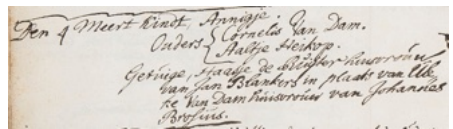 Den 4 Meert Kindt, Annigje.
Ouders Cornelis Van Dam.
Aaltje Heikop.
Getuige, Haasje de huisvrouw
van Jan Blankers in plaats van
te Van Dam huisvrouw van Johannes
Brosius.